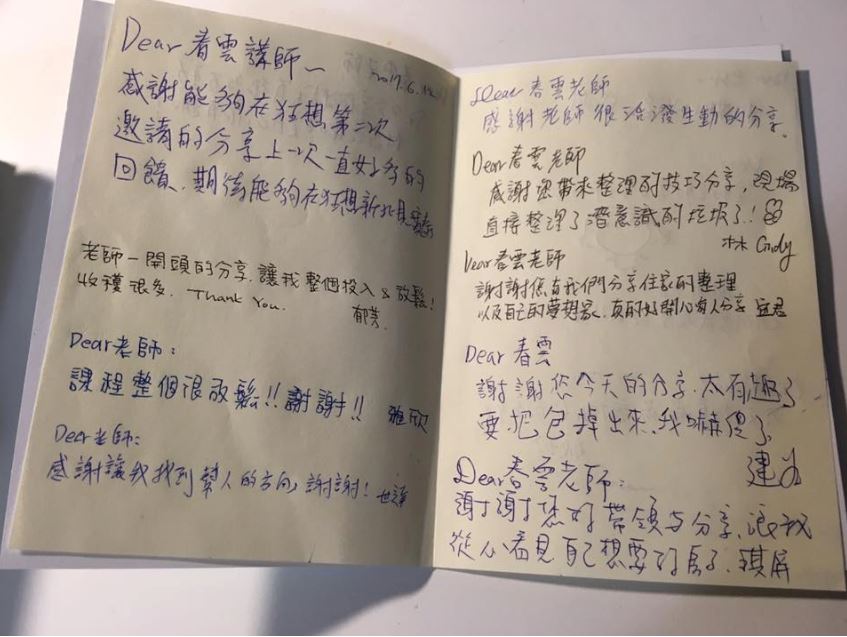 Dear 春雲講師~
2017.6.14
感謝能夠在狂想第二次
邀請的分享上一次一直好多的
回饋、期待能夠在狂想新北見
老師一開頭的分享,讓我整個投入&放鬆!
收穫很多. Thank You.
郁芳.
Dear老師:
課程整個很放鬆!!謝謝!! 雅欣
Dear老師:
感謝讓我找到幫人的方向,謝謝!
Dear 春雲老師
感謝老師很活潑生動的分享。
Dear春雲老師
感謝您帶來整理的技巧分享,現場
直接整理了潛意識的垃圾了!
林 Cindy
Dear春雲老師
謝謝您與我們分享住家的整理
以及自己的夢想家、真的好開心有人分享 宜君
Dear 春雲
謝謝您今天的分享、太有趣了
要把包掉出來、我嚇傻了
Dear春雲老師:
謝謝您的帶領與分享、讓我
從心看見自己想要的房子. 琪屏